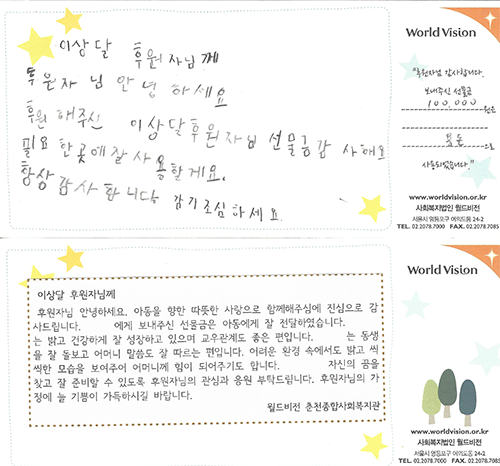 이상달 후원자님께
후원자 님 안녕 하세요
후원 해주신 이상달후원자님 선물금감 사해요
필요 한곳에잘사용할게요.
항상 감사 합니다 감기조심하세요.
World Vision
"후원자님 감사합니다.
보내주신 선물금
100,000 원은
으로
사용되었습니다."
www.worldvision.or.kr
사회복지법인 월드비전
서울시 영등포구 여의도동 24-2
TEL. 02.2078.7000 FAX. 02.2078.7085
이상달 후원자님께
후원자님 안녕하세요. 아동을 향한 따뜻한 사랑으로 함께해주심에 진심으로 감
사드립니다. 에게 보내주신 선물금은 아동에게 잘 전달하였습니다.
는 밝고 건강하게 잘 성장하고 있으며 교우관계도 좋은 편입니다. 는 동생
을 잘 돌보고 어머니 말씀도 잘 따르는 편입니다. 어려운 환경 속에서도 밝고 씩
씩한 모습을 보여주어 어머니께 힘이 되어주기도 합니다. 자신의 꿈을
찾고 잘 준비할 수 있도록 후원자님의 관심과 응원 부탁드립니다. 후원자님의 가
정에 늘 기쁨이 가득하시길 바랍니다.
월드비전 춘천종합사회복지관
World Vision
www.worldvision.or.kr
사회복지법인 월드비전
서울시 영등포구 여의도동 24-2
TEL. 02.2078.7000 FAX. 02.2078.7085